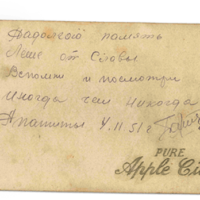 На долгою память
Леше от Славы
Вспомни и посмотри
иногда чем никогда
Апатиты 4.11.51 г.
PURE
Apple Ci